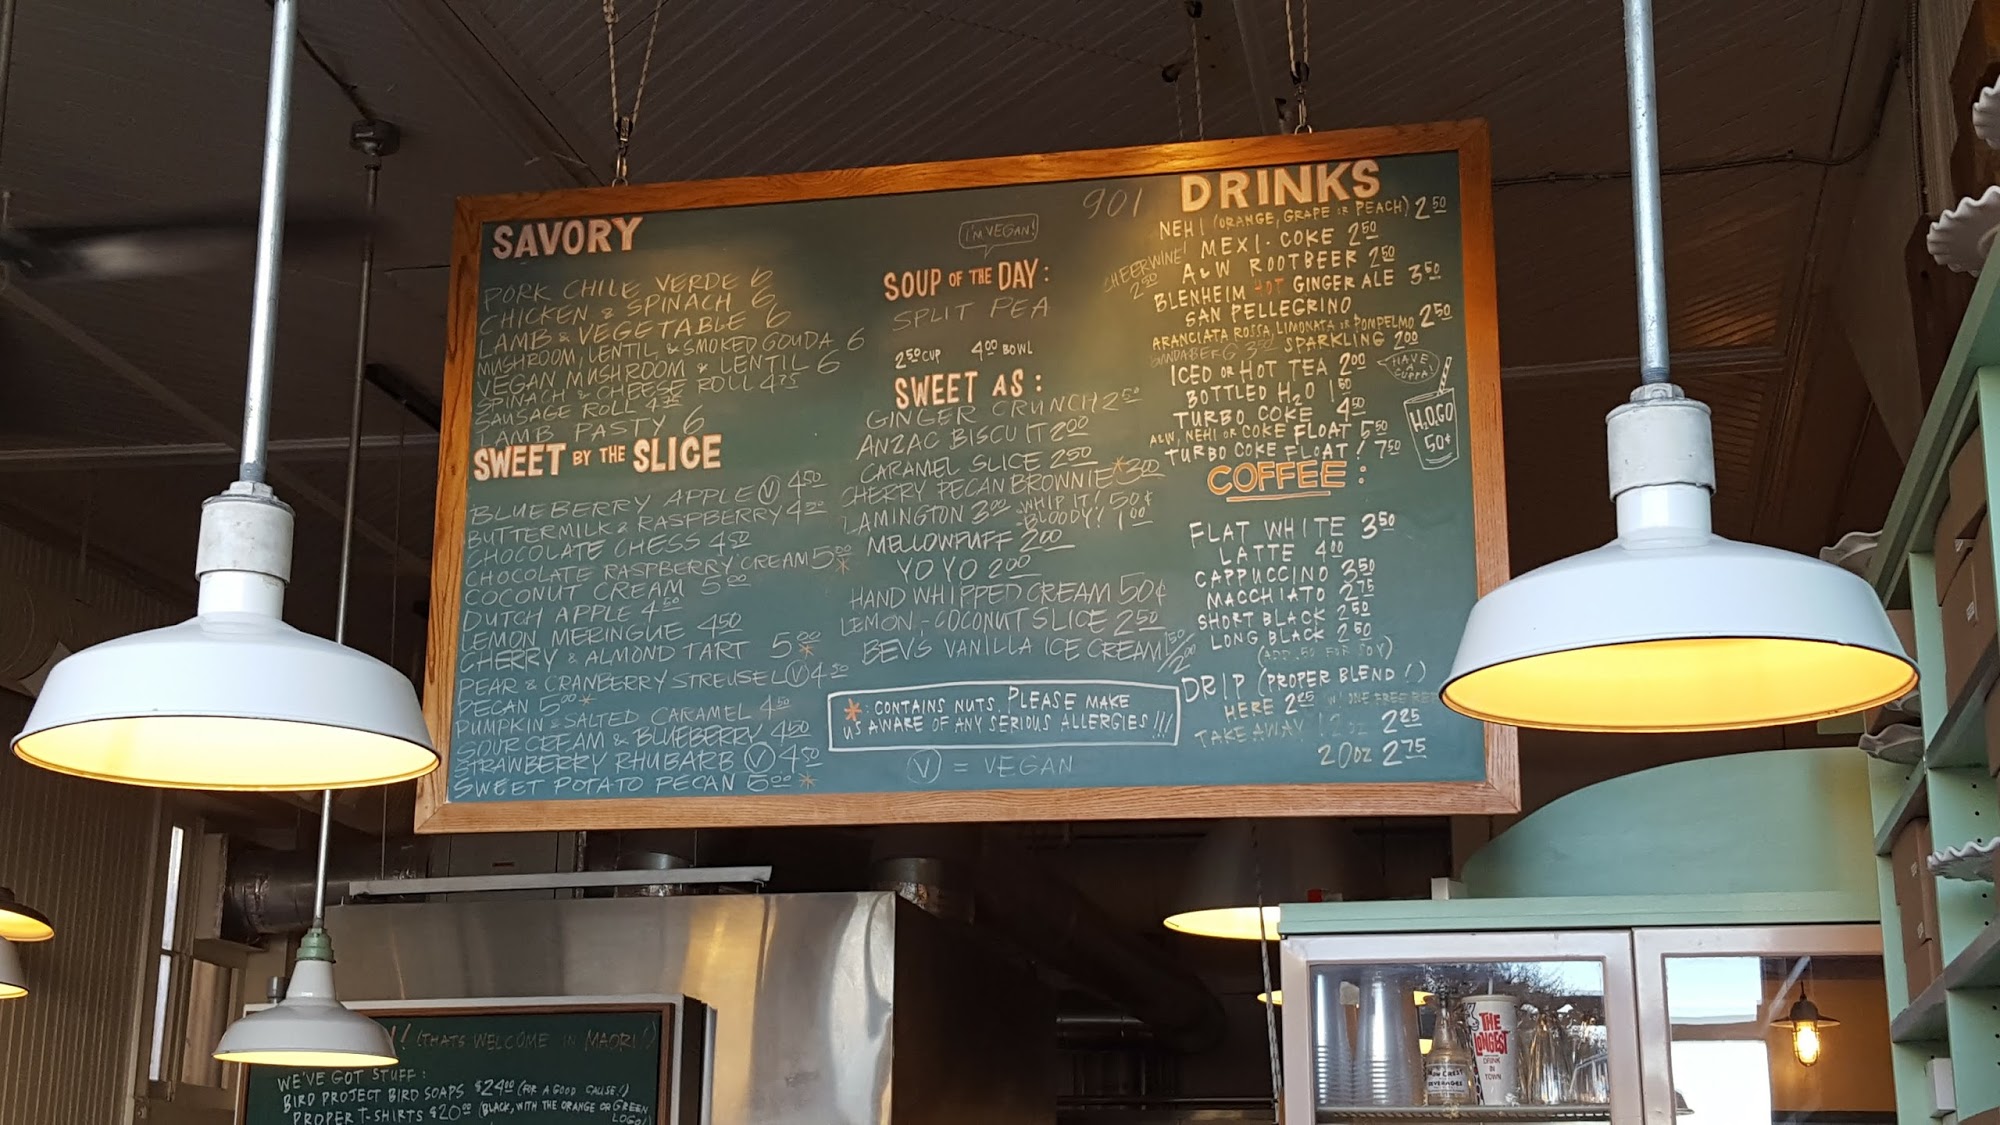 SAVORY
PORK CHILE VERDE 6
CHICKEN & SPINACH 6
LAMB & VEGETABLE 6
MUSHROOM, LENTIL & SMOKED GOUDA 6
VEGAN MUSHROOM & LENTIL 6
SPINACH & CHEESE ROLL 4.75
SAUSAGE ROLL 4.75
LAMB PASTY 6
SWEET BY THE SLICE
BLUEBERRY APPLE (V) 4.50
BUTTERMILK & RASPBERRY 4.50
CHOCOLATE CHESS 4.50
CHOCOLATE RASPBERRY CREAM 5.00 *
COCONUT CREAM 5.00
DUTCH APPLE 4.50
LEMON MERINGUE 4.50
CHERRY & ALMOND TART 5.00 *
PEAR & CRANBERRY STREUSEL (V) 4.50
PECAN 5.00 *
PUMPKIN & SALTED CARAMEL 4.50
SOUR CREAM & BLUEBERRY 4.50
STRAWBERRY RHUBARB (V) 4.50
SWEET POTATO PECAN 5.00 *
I'M VEGAN!
SOUP OF THE DAY:
SPLIT PEA
2.50 CUP 4.00 BOWL
SWEET AS:
GINGER CRUNCH 2.50
ANZAC BISCUIT 2.00
CARAMEL SLICE 2.50
CHERRY PECAN BROWNIE * 3.00
LAMINGTON 3.00 -WHIP IT! 50¢
-BLOODY! 1.00
MELLOWPUFF 2.00
YOYO 2.00
HAND WHIPPED CREAM 50¢
LEMON-COCONUT SLICE 2.50
BEV'S VANILLA ICE CREAM 1.50/2.00
*: CONTAINS NUTS. PLEASE MAKE
US AWARE OF ANY SERIOUS ALLERGIES!!!
(V) = VEGAN
901
DRINKS
NEHI (ORANGE, GRAPE OR PEACH) 2.50
CHEERWINE! 2.50
MEXI-COKE 2.50
A&W ROOTBEER 2.50
BLENHEIM HOT GINGER ALE 3.50
SAN PELLEGRINO
ARANCIATA ROSSA, LIMONATA OR POMPELMO 2.50
SPARKLING 2.00
ICED OR HOT TEA 2.00
HAVE A CUPPA!
BOTTLED H2O 1.50
TURBO COKE 4.50
A&W, NEHI OR COKE FLOAT 5.50
TURBO COKE FLOAT! 7.50
H.O.GO 50¢
COFFEE:
FLAT WHITE 3.50
LATTE 4.00
CAPPUCCINO 3.50
MACCHIATO 2.75
SHORT BLACK 2.50
LONG BLACK 2.50
(ADD .50 FOR SOY)
DRIP (PROPER BLEND!)
HERE 2.25 W/ ONE FREE
TAKE AWAY 12oz 2.25
20oz 2.75
! (THATS WELCOME IN MAORI!)
WE'VE GOT STUFF:
BIRD PROJECT BIRD SOAPS $24.00 (FOR A GOOD CAUSE!)
PROPER T-SHIRTS $20.00 (BLACK, WITH THE ORANGE OR GREEN
LOGO!)
THE
LONGEST
DRINK
IN
TOWN
BEVERAGES